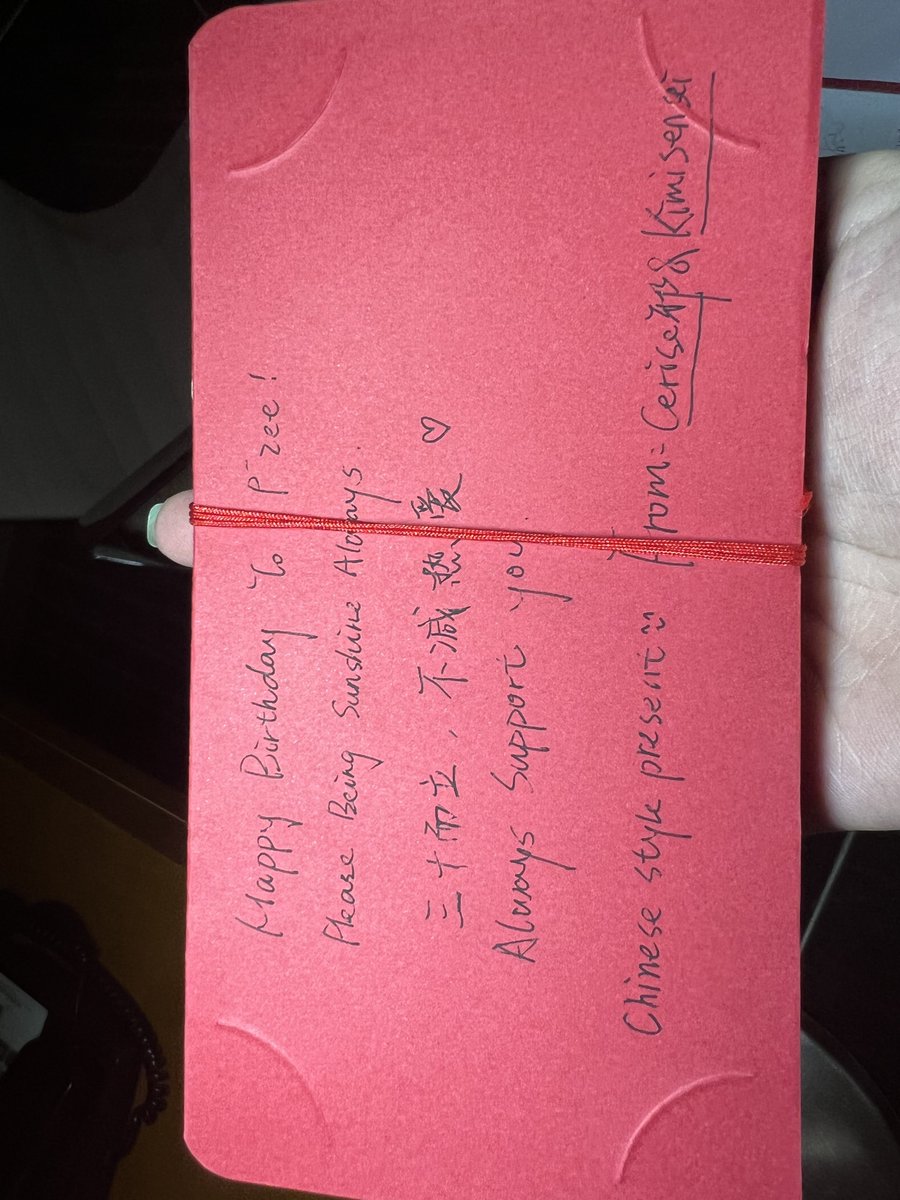 Happy Birthday to P'zee!
Please Being Sunshine Always.
三十而立，不减热爱♡
Always Support you.
Chinese style present
From: Cerise郁 & Kimisensei